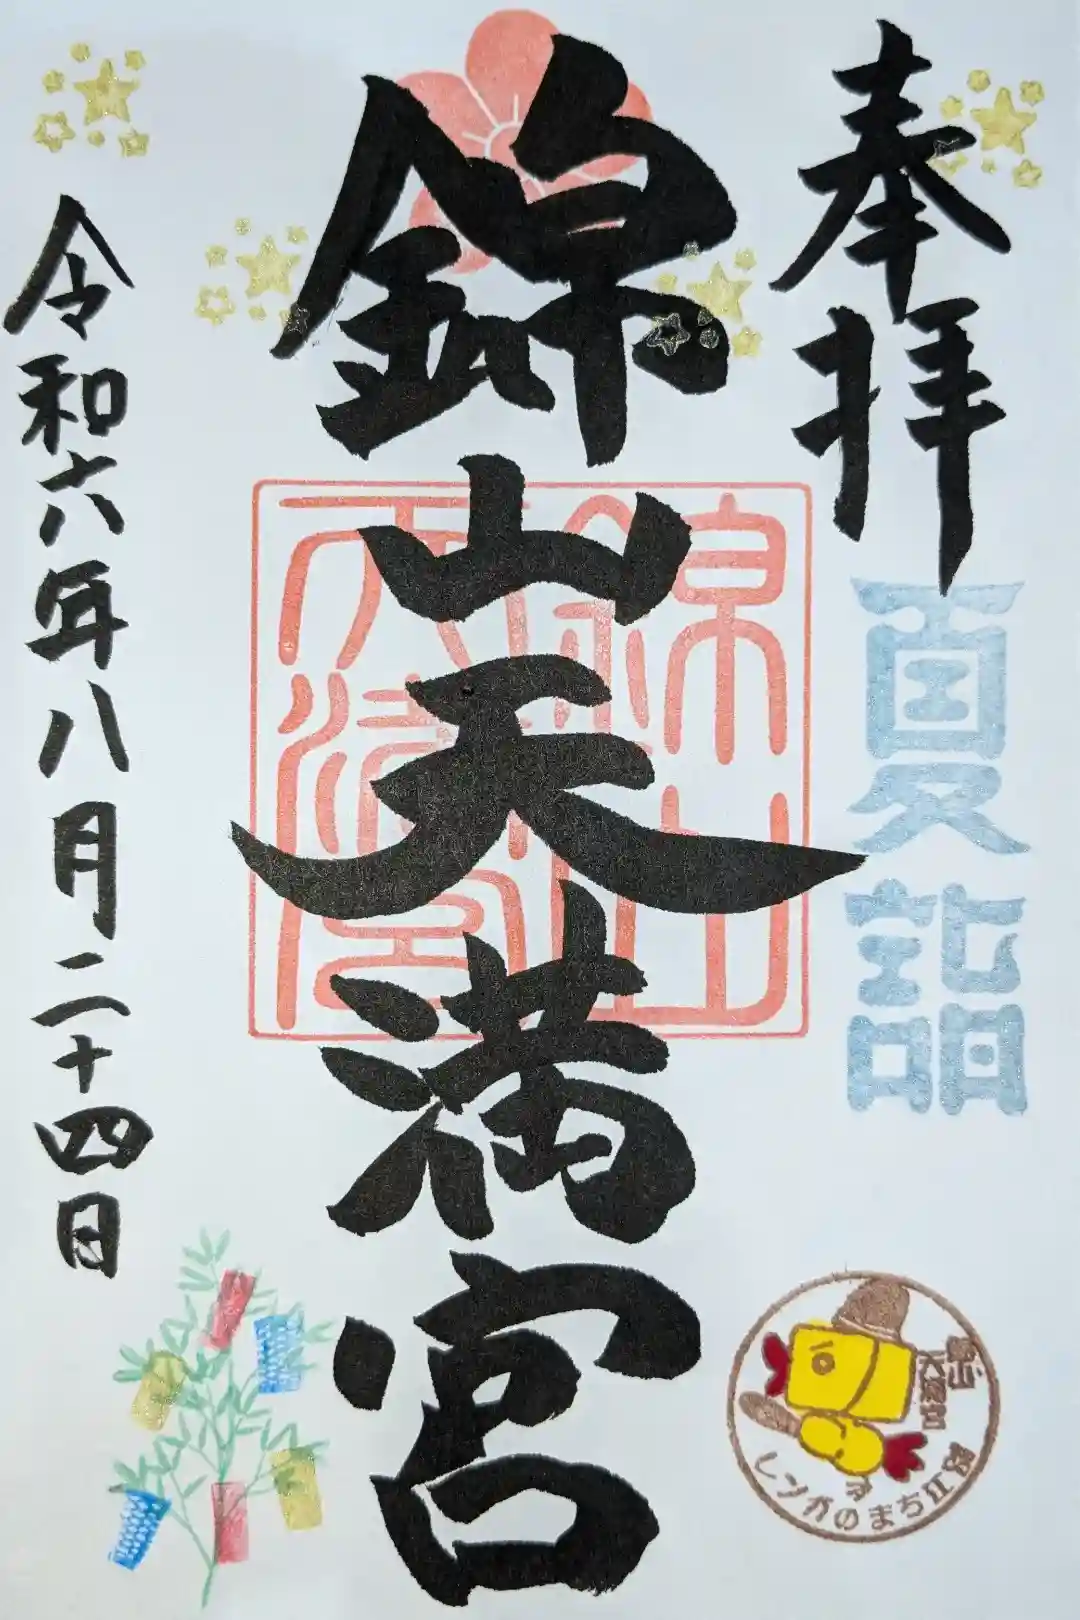 奉拝
夏詣
錦山天満宮
錦山
天満宮
令和六年八月二十四日
錦山
天満宮
レンガのまち江別